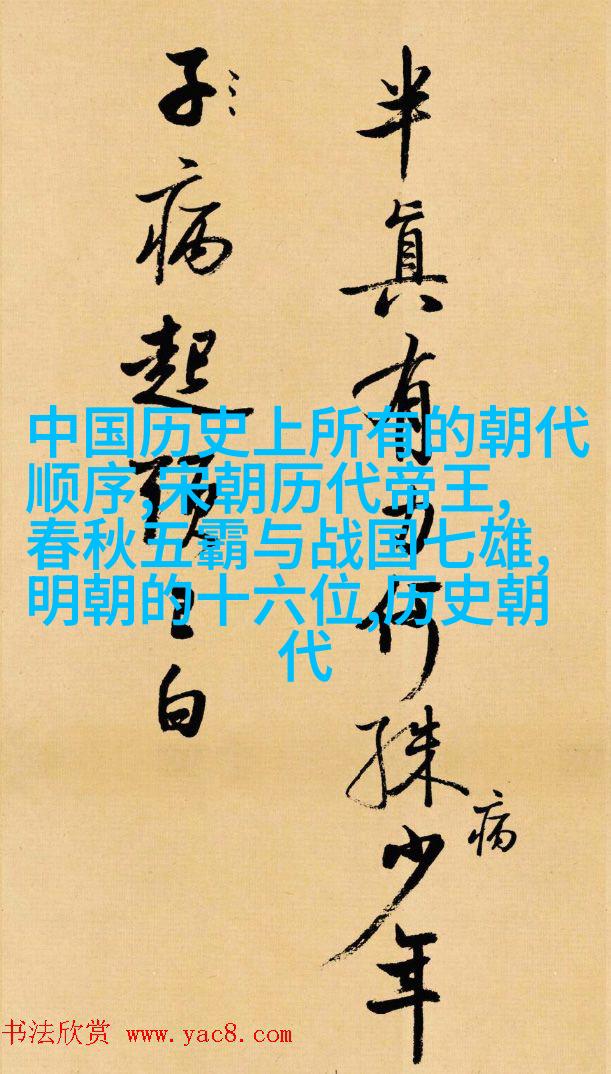 半真有力何殊少年
病
子病起頭已白
中国历史上所有的朝代
顺序,宋朝历代帝王,
春秋五霸与战国七雄,
明朝的十六位,历史朝
代
书法欣赏 www.yac8.com